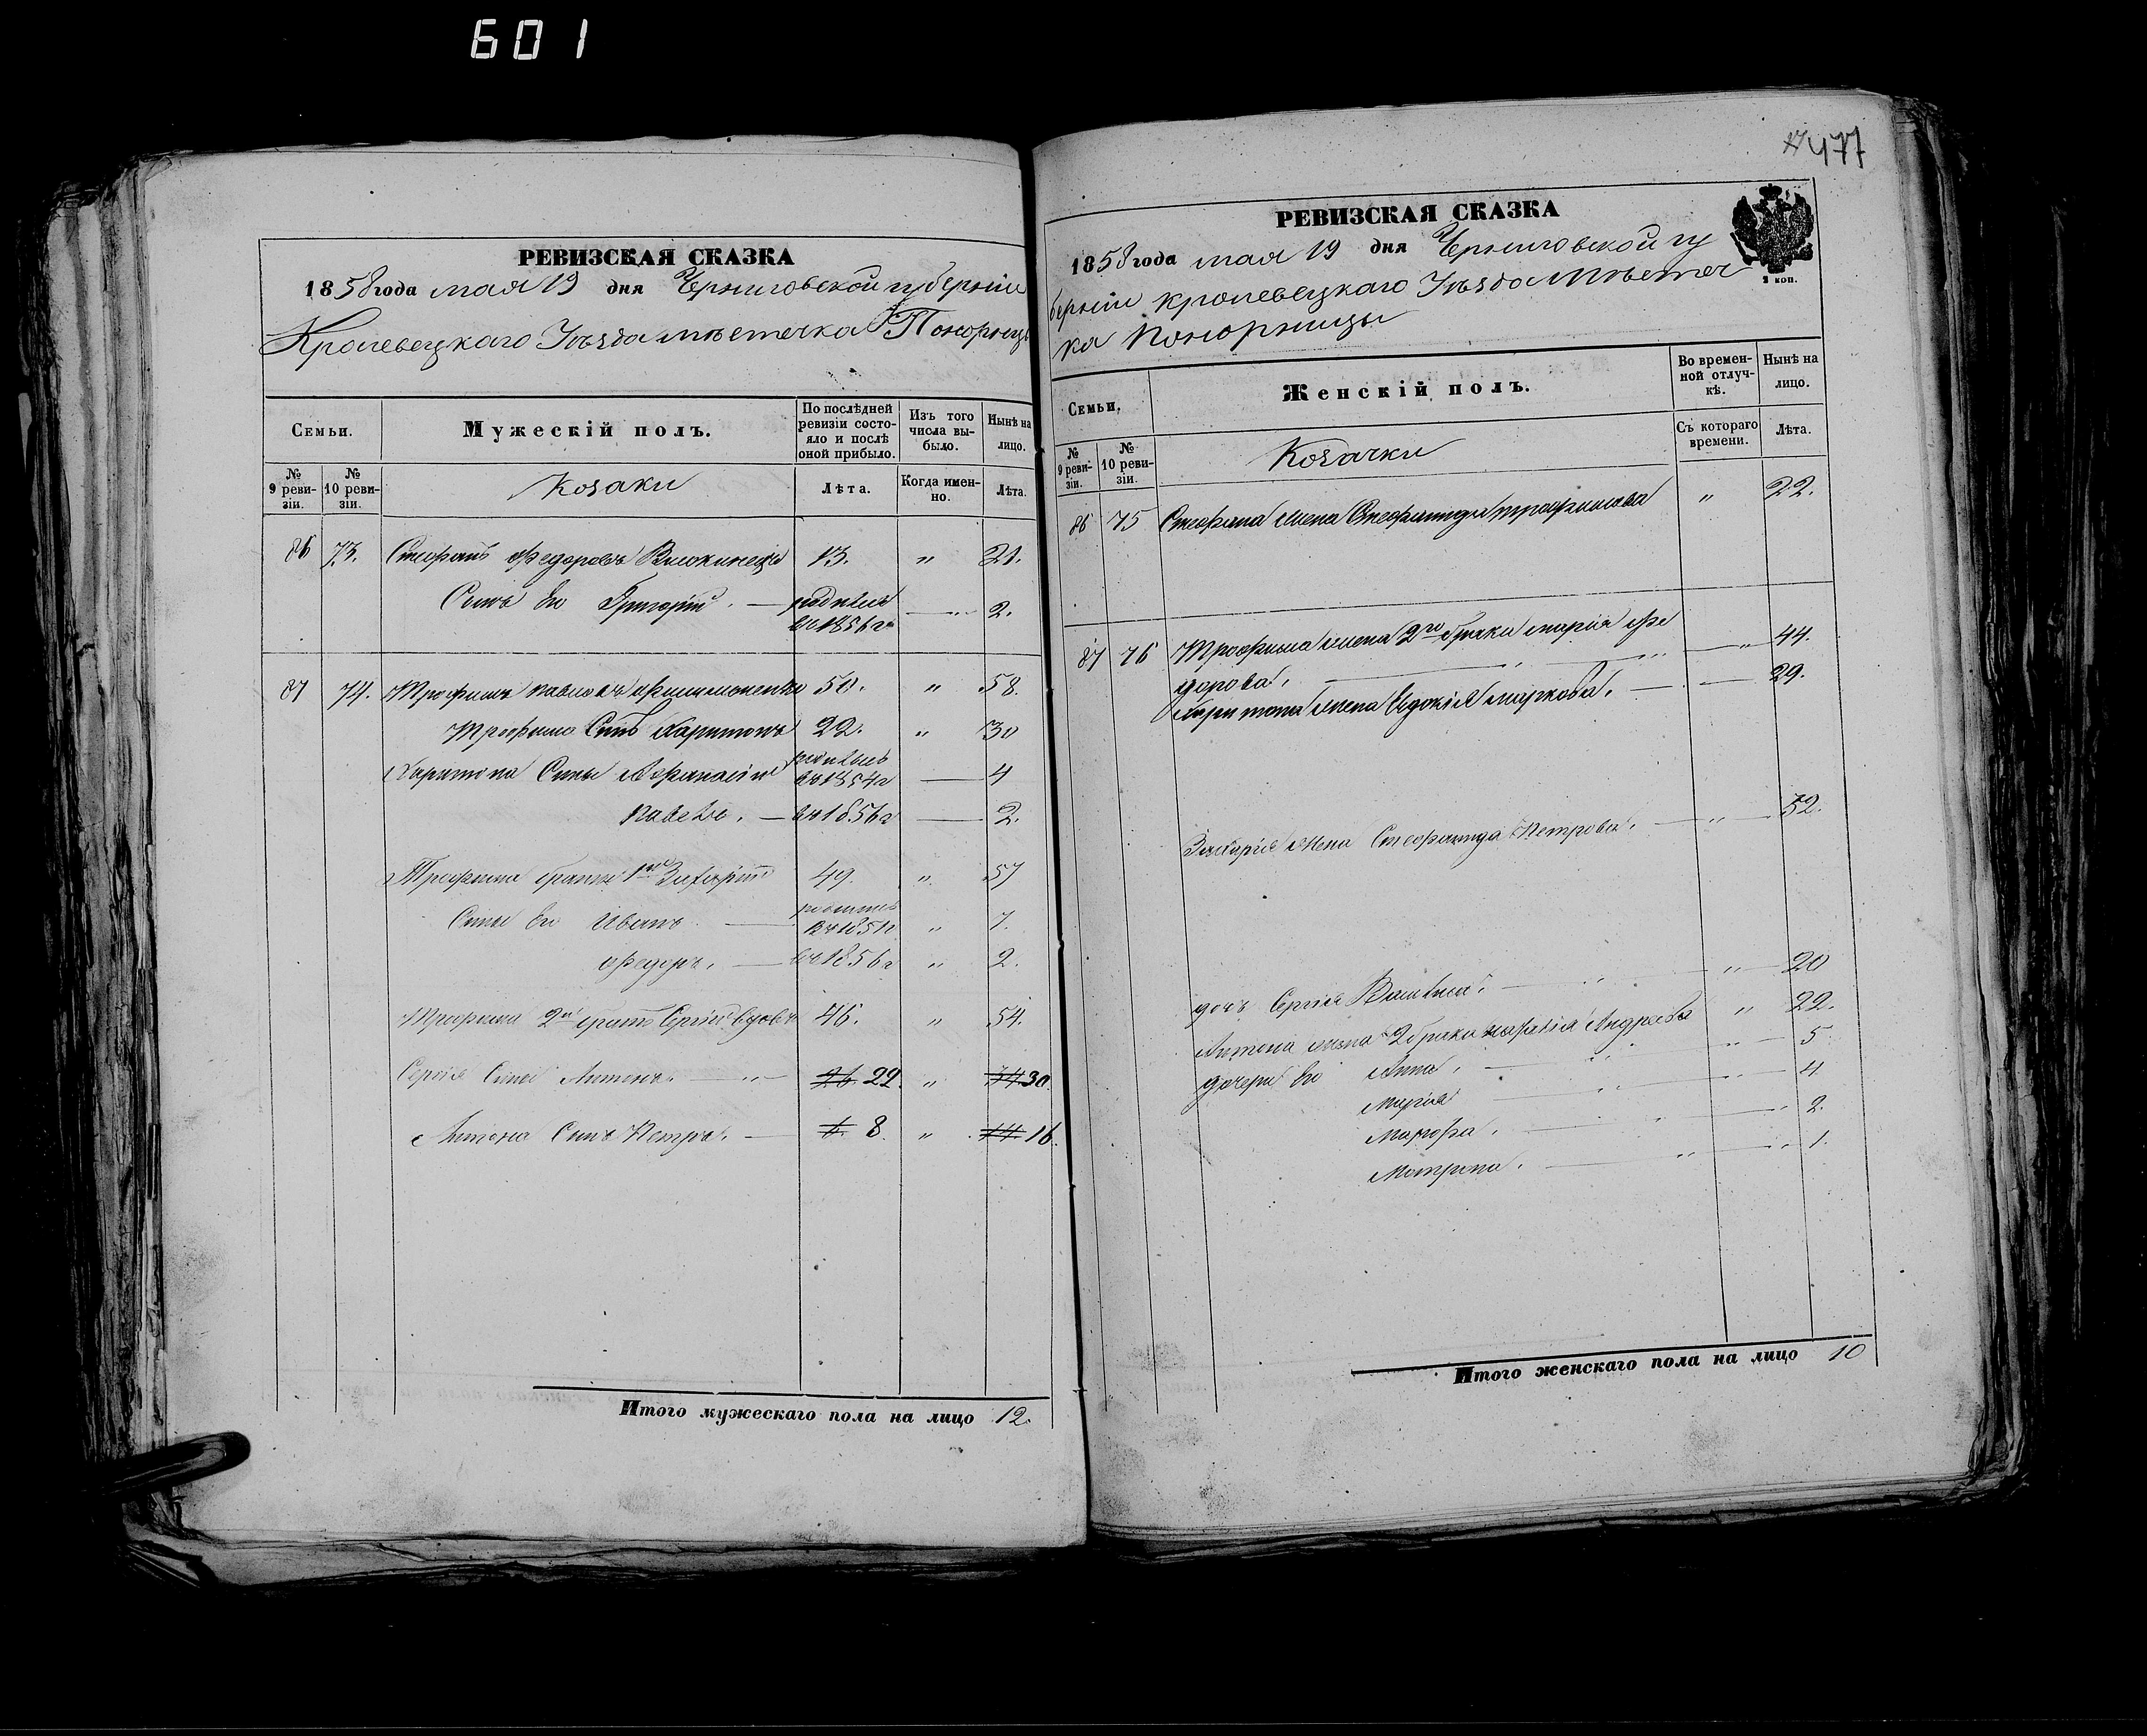 601
РЕВИЗСКАЯ СКАЗКА
1858 года мая 19 дня Черниговской губерніи
Кролевецкаго Уѣзда мѣстечка Понорницы
Семьи.
Мужескій полъ.
По послѣдней ревизіи состояло и послѣ оной прибыло.
Изъ того числа выбыло.
Нынѣ на лицо.
№ 9 ревизіи.
№ 10 ревизіи.
Козаки
Лѣта.
Когда именно.
Лѣта.
86 73. Стефанъ Федоровъ 13. " 21.
Сынъ его Григорій. — родился въ 1856 г — " 2.
87 74. Трофимъ Павловъ 50. " 58.
Трофима Сынъ Харитонъ 22. " 30
Харитона Сыны Афанасій родился въ 1854 г — 4
Павелъ. — въ 1856 г — 2.
Трофима братъ 1й Захарій 49. " 57
Сыны его Иванъ — родился въ 1851 г " 7.
Федоръ. — въ 1856 г " 2.
Трофима 2й братъ Сергій вдовъ 46. " 54.
Сергія Сынъ Антонъ. — " — 26 22. " 34 30.
Антона Сынъ Петръ. — 6. 8. " 14 16.
Итого мужескаго пола на лицо 12.
477
РЕВИЗСКАЯ СКАЗКА
1858 года мая 19 дня Черниговской гу
берніи Кролевецкаго Уѣзда Мѣстеч
ка Понорницы
2 коп.
Семьи.
Женскій полъ.
Во временной отлучкѣ.
Нынѣ на лицо.
№ 9 ревизіи.
№ 10 ревизіи.
Козачки
Съ котораго времени.
Лѣта.
86 75 Стефана жена Стефанида Трофимова " 22.
87 76 Трофима жена 2го брака Марія Фе
дорова. — " — 44.
Харитона жена Евдокія Маркова. — 29.
Захарія жена Стефанида Петрова. — " — 52.
дочь Сергія — " — 20
Антона жена 2 брака Андреева " 22.
дочери его Анна. — " — 5
Марія — 4
Марфа. — " 2.
Матрона. — " — " 1.
Итого женскаго пола на лицо 10